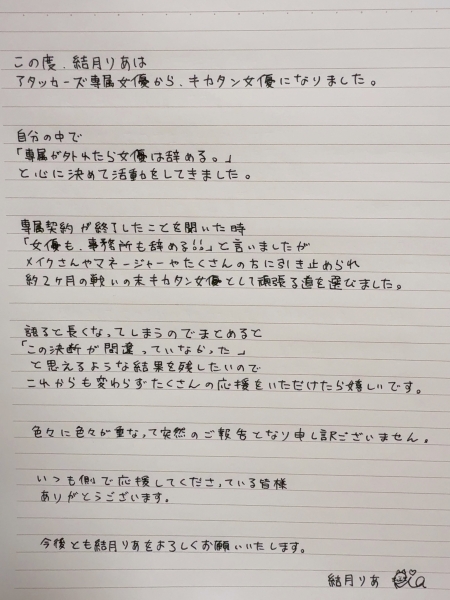 この度、結月りあは
アタッカーズ専属女優から、キカタン女優になりました。
自分の中で
「専属が外れたら女優は辞める。」
と心に決めて活動をしてきました。
専属契約が終了したことを聞いた時
「女優も、事務所も辞める!!」と言いましたが
メイクさんやマネージャーやたくさんの方に引き止められ
約2ヶ月の戦いの末キカタン女優として頑張る道を選びました。
語ると長くなってしまうのでまとめると
「この決断が間違っていなかった」
と思えるような結果を残したいので
これからも変わらずたくさんの応援をいただけたら嬉しいです。
色々に色々が重なって突然のご報告となり申し訳ございません。
いつも側で応援してくださっている皆様
ありがとうございます。
今後とも結月りあをよろしくお願いいたします。
結月りあ